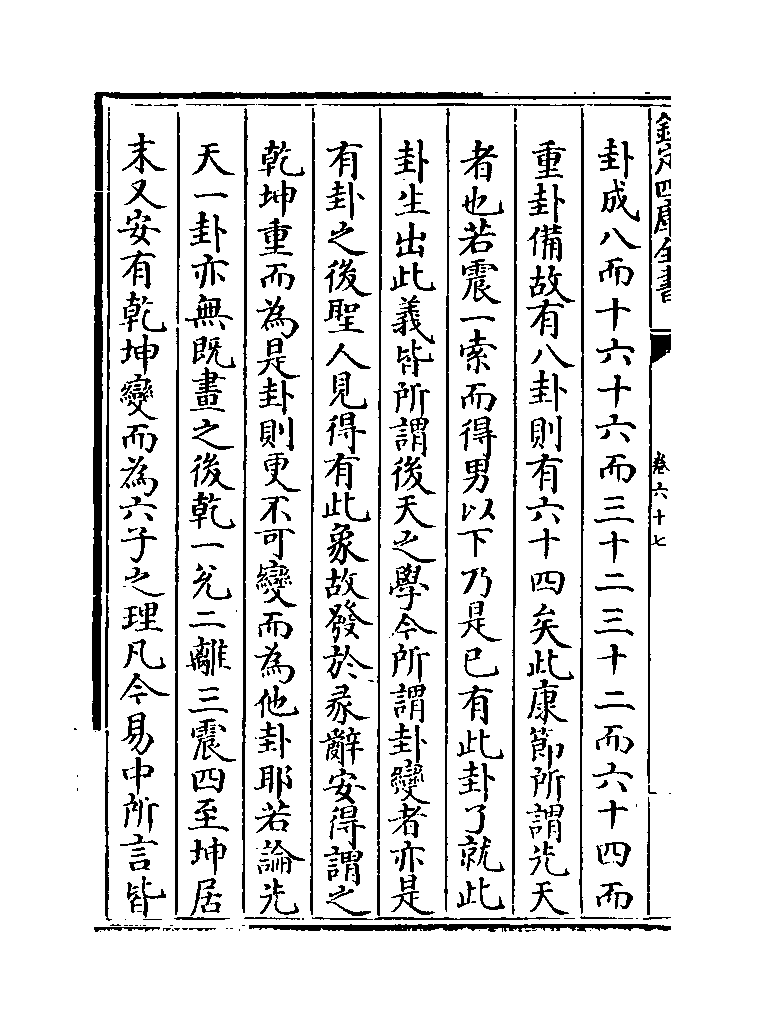 欽定四庫全書
卷六十七
卦成八而十六十六而三十二三十二而六十四而
重卦備故有八卦則有六十四矣此康節所謂先天
者也若震一索而得男以下乃是已有此卦了就此
卦生出此義皆所謂後天之學今所謂卦變者亦是
有卦之後聖人見得有此象故發於彖辭安得謂之
乾坤重而為是卦則更不可變而為他卦耶若論先
天一卦亦無既畫之後乾一兌二離三震四至坤居
末又安有乾坤變而為六子之理凡今易中所言皆